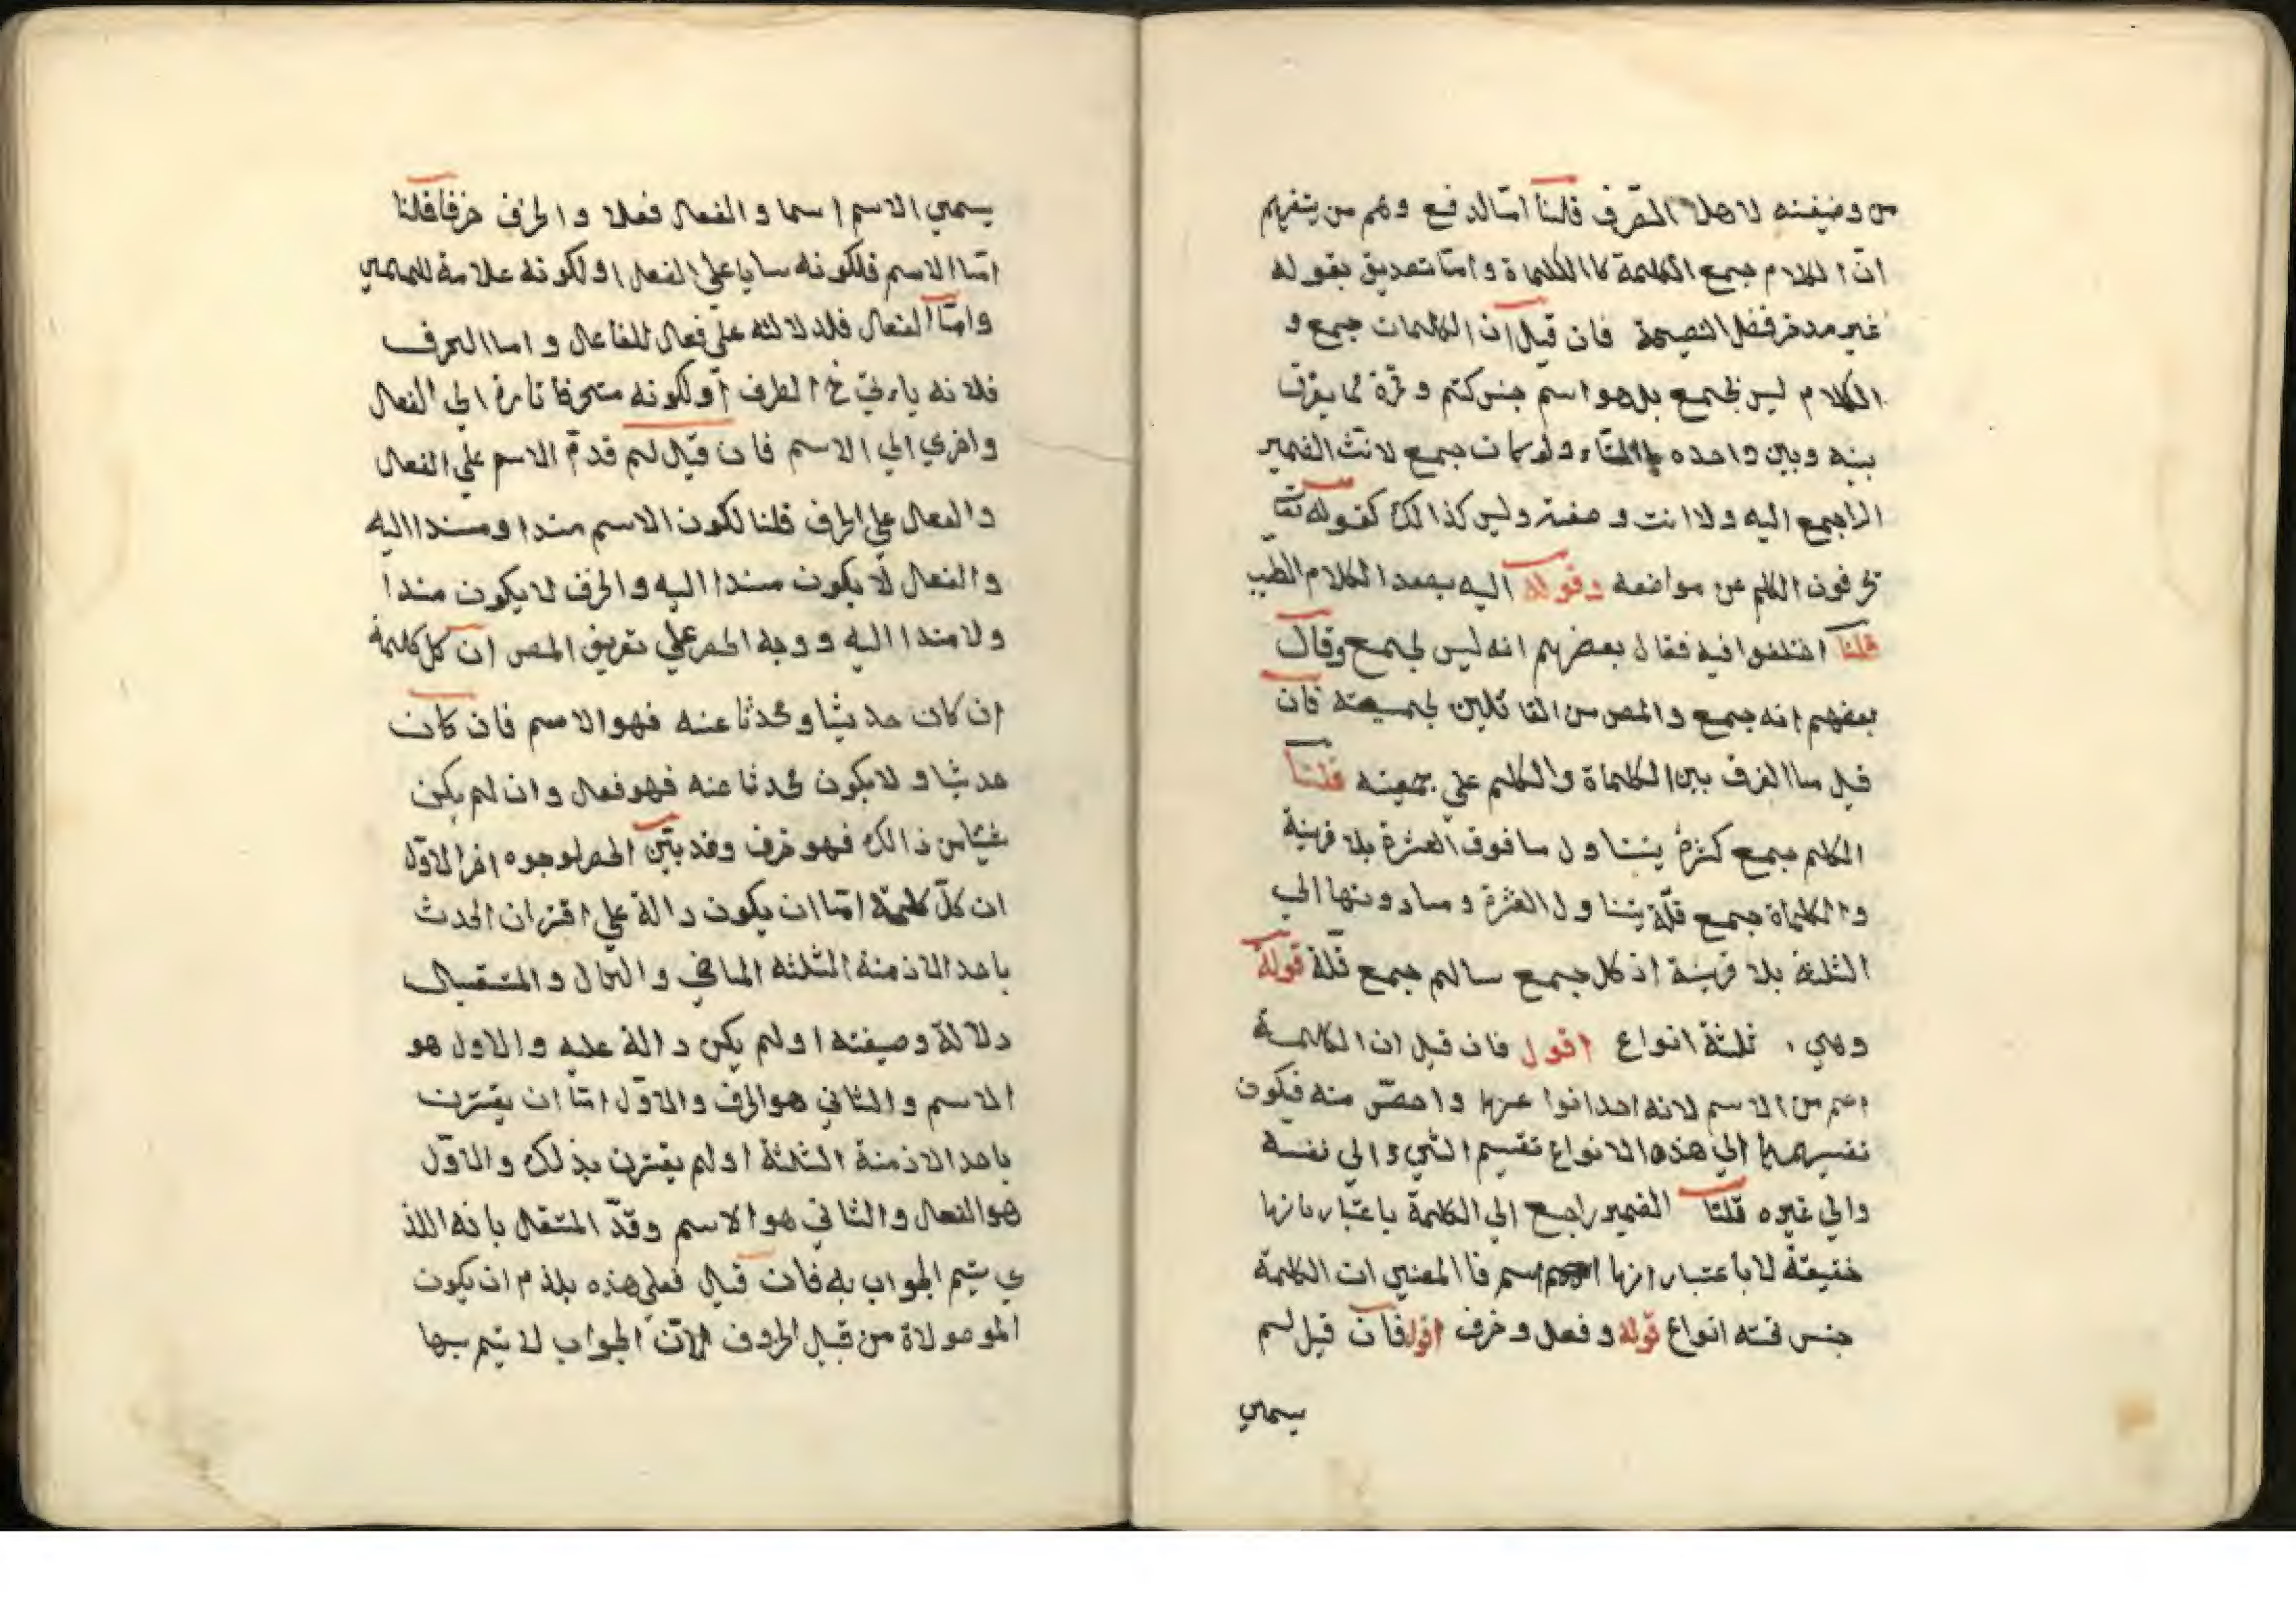 من وضيفته لا هل التصرف قلنا امّا لدفع وهم من يتفهم
انّ الكلام جمع الكلمة كا الكلماة و امّا تصديق بقوله
غير مدخر فضل النصيحة فان قيل انّ الكلمات جمع و
الكلام ليس بجمع بل هو اسم جنس كتم و تمرة مما يفرق
بينه وبين واحده بالتاء ولو كان جمع لانّث الضمير
الراجع اليه ولا انت وصفته وليس كذالك كقوله تعا
تحرفون الكلم عن مواضعه وقوله اليه يصعد الكلام الطيب
قلنا اختلفوا فيه فقال بعضهم انه ليس بجمع وقال
بعضهم انه جمع والمص من القائلين بجمعيته فان
قيل ما الفرف بين الكلماة والكلم علي جمعيته قلنا
الكلم جمع كثرة يتناول ما فوق العشرة بلا قرينة
والكلماة جمع قلّة يتناول العشرة وما دونها الي
الثلثة بلا قرينة اذ كل جمع سالم جمع قلّة قوله
وهي ثلثة انواع اقول فان قيل ان الكلمة
اعم من الاسم لانه احد انوا عها واخصّ منه فيكون
تقسيمها الي هذه الانواع تقسيم الشيء الي نفسه
والي غيره قلنا الضمير راجع الي الكلمة باعتبار مانها
حقيقة لا باعتبار انها اسم فا المعني ان الكلمة
جنس تحته انواع قوله وفعل وحرف اقول فان قيل لم
يسمي
يسمي الاسم اسما و الفعل فعلا و الحرف حرفا قلنا
امّا الاسم فلكونه ساميا علي الفعل او لكونه علامة للمسمي
وامّا الفعل فلدلالته علي فعال للفاعال و اما الحرف
فلانه ياءتي في الطرف اولكونه متحرفا تارة الي الفعل
واخري الي الاسم فان قيل لم قدم الاسم علي الفعل
والفعل علي الحرف قلنا لكون الاسم مندا ومسندا اليه
والفعل لا يكون مسندا اليه والحرف لا يكون مندا
ولا مندا اليه ووجه الحصر علي تعريف المص ان كل كلمة
ان كان حديثا و محدثا عنه فهو الاسم فان كان
حديثا و لا يكون محدثا عنه فهو فعل وان لم يكن
شيئا من ذالك فهو حرف وقد بيّن الحصر لوجوه اخر الاوّل
ان كلّ كلمة امّا ان يكون دالة علي اقتران الحدث
باحد الازمنة الثلثه الماضي والحال والمستقبال
دلالة وصيفته او لم يكن دالة عليه والاول هو
الاسم والثاني هو الحرف والاوّل امّا ان يقترن
باحد الازمنة الثلثة او لم يقترن بذلك والاوّل
هو الفعل والثاني هو الاسم وقدّ المتقل بانه اللذ
ي يتم الجواب به فان قيل فعلي هذه يلذم ان يكون
الموصولاة من قبيل الحروف لانّ الجواب لا يتم بها